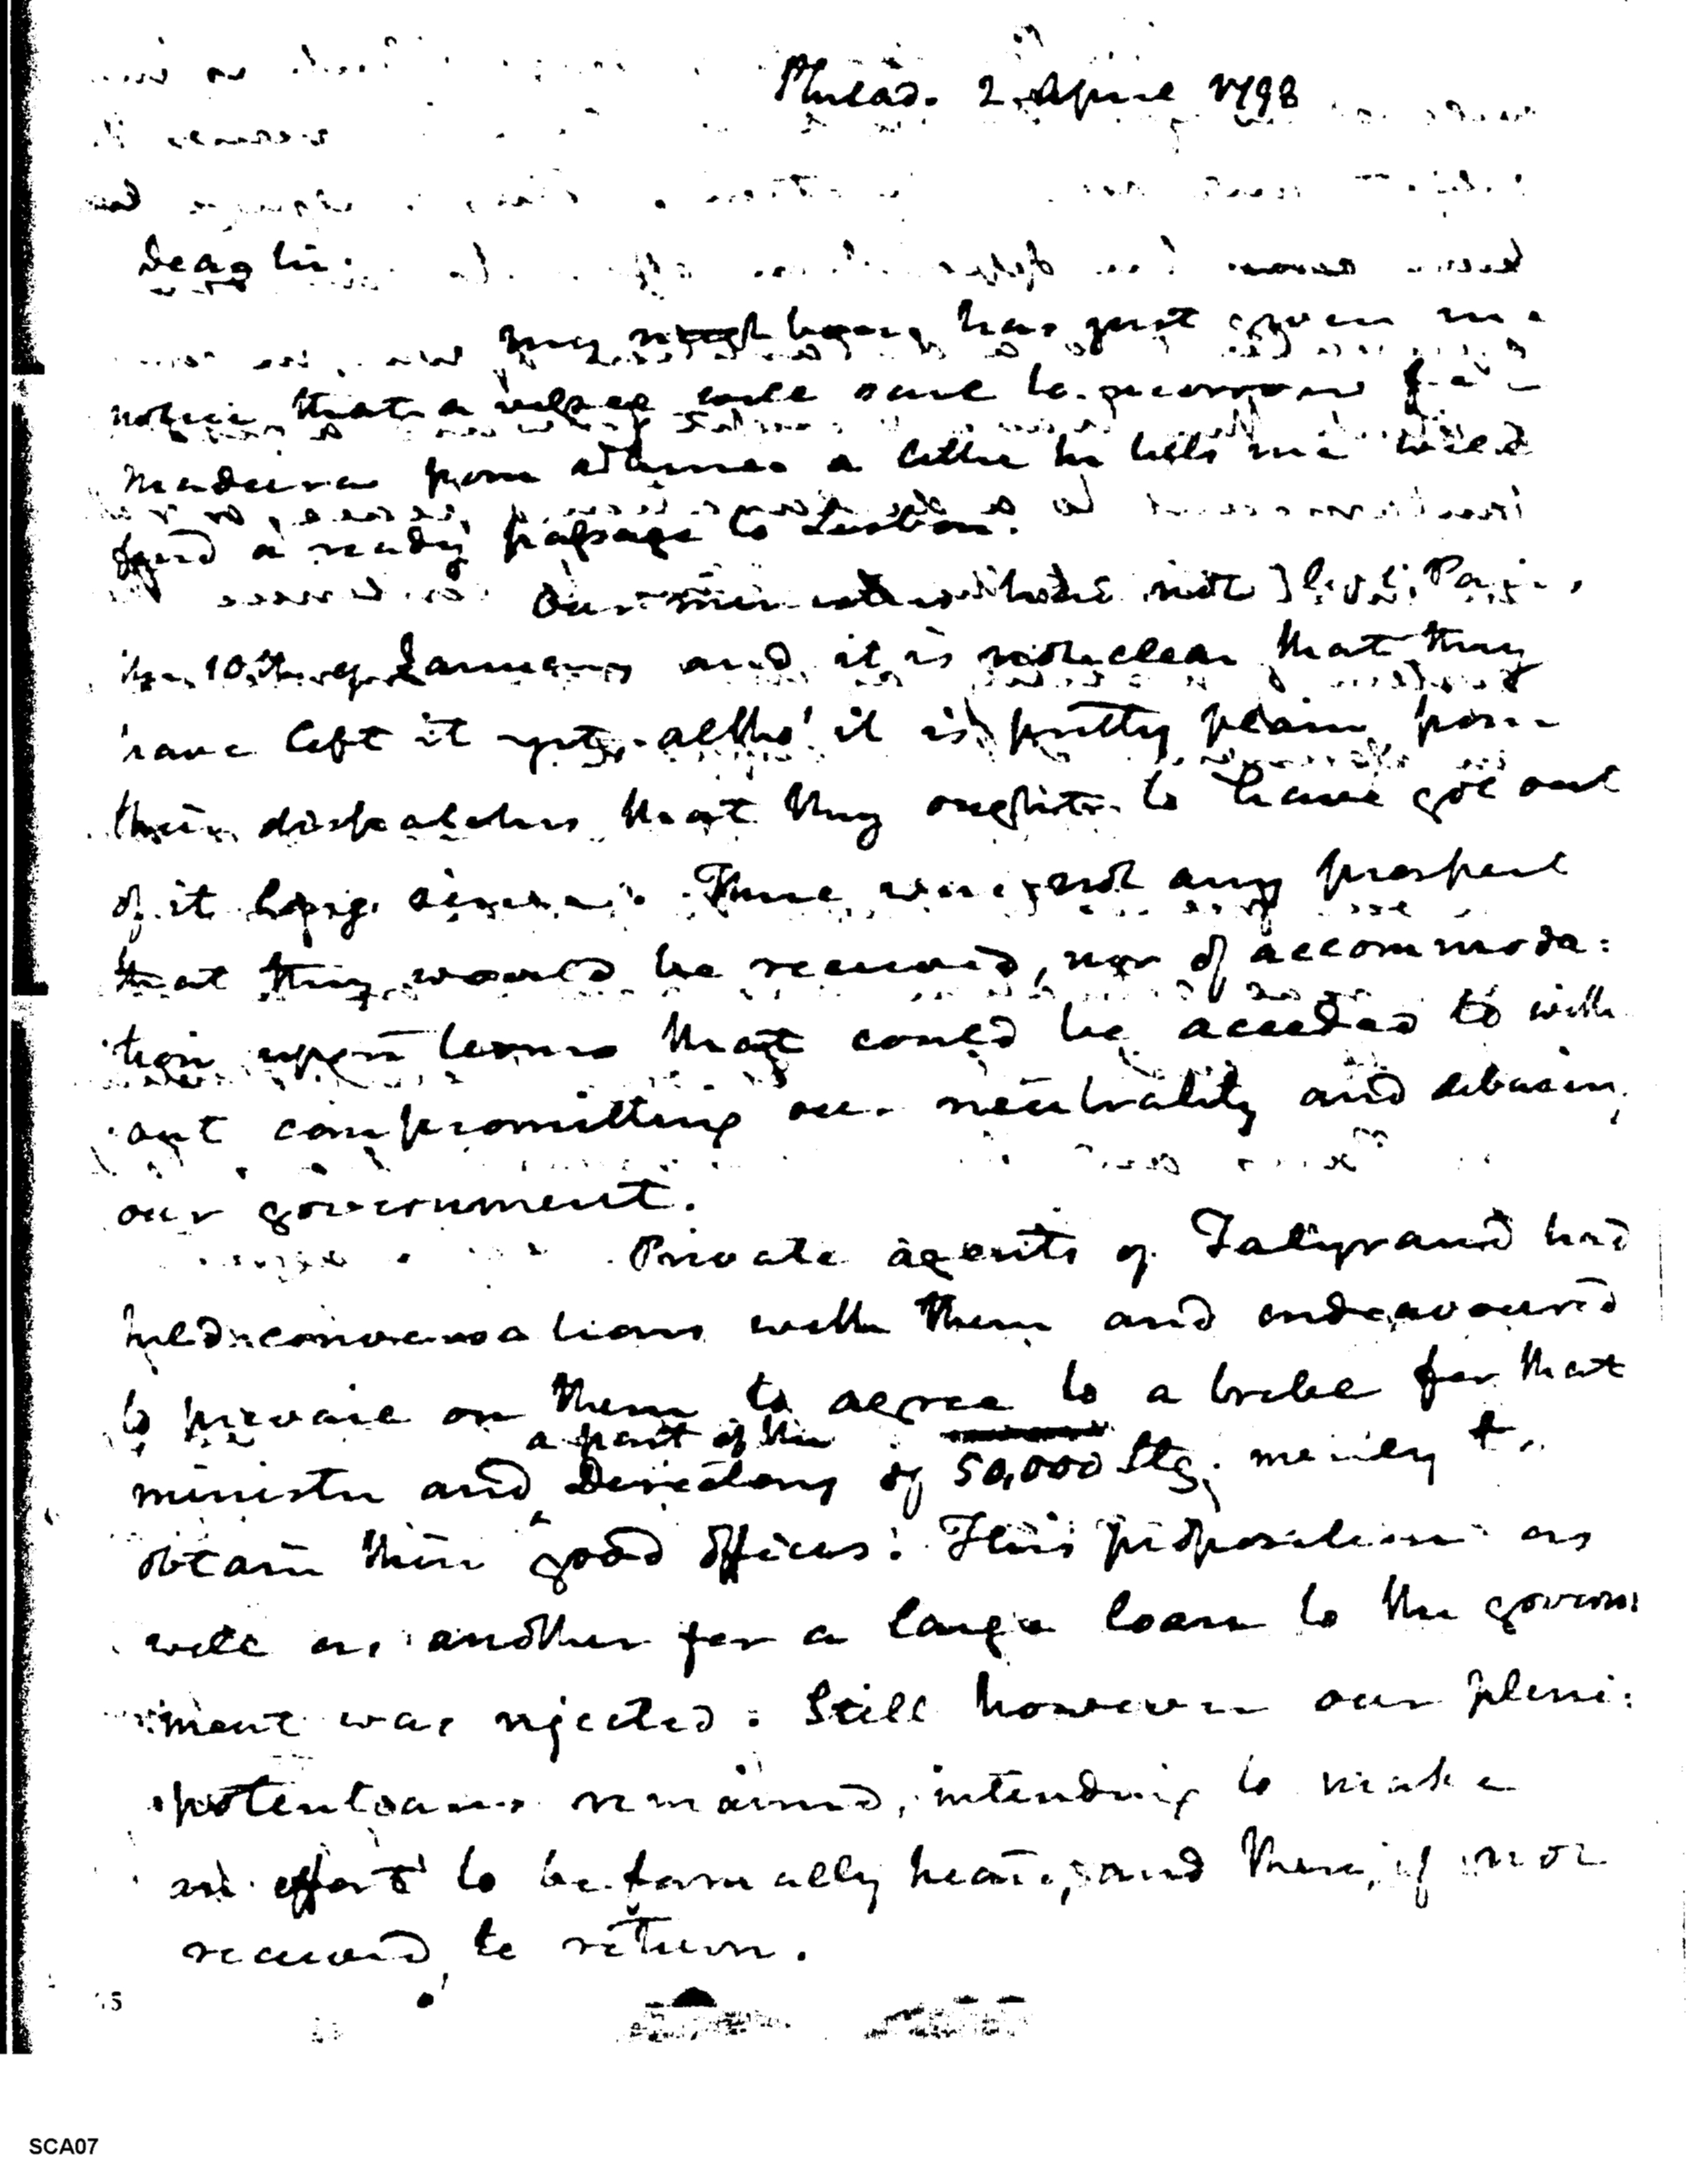 Philad. 2 April 1798
Dear Sir.
my neighbour has just given me
notice that a vessel will sail to morrow for
Madeira from whence a letter he tells me will
find a ready passage to Lisbon.
Our ministers had not left Paris
the 10th of January and it is not clear that they
have left it yet, altho' it is pretty plain from
their dispatches that they ought to have got out
of it long since. There was not any prospect
that they would be received, nor of accommoda:
tion upon terms that could be acceded to with
out compromitting our neutrality and debasing
our government.
Private agents of Talyrand had
held conversations with them and endeavoured
to prevail on them to agree to a bribe for that
a part of the
minister and Directory of 50,000 Stg. merely to
obtain their good offices: This proposition as
well as another for a large loan to the govern
ment was rejected: Still however our pleni:
potentiaries remained, intending to make
an effort to be formally heard, and then, if not
received, to return.
15
SCA07